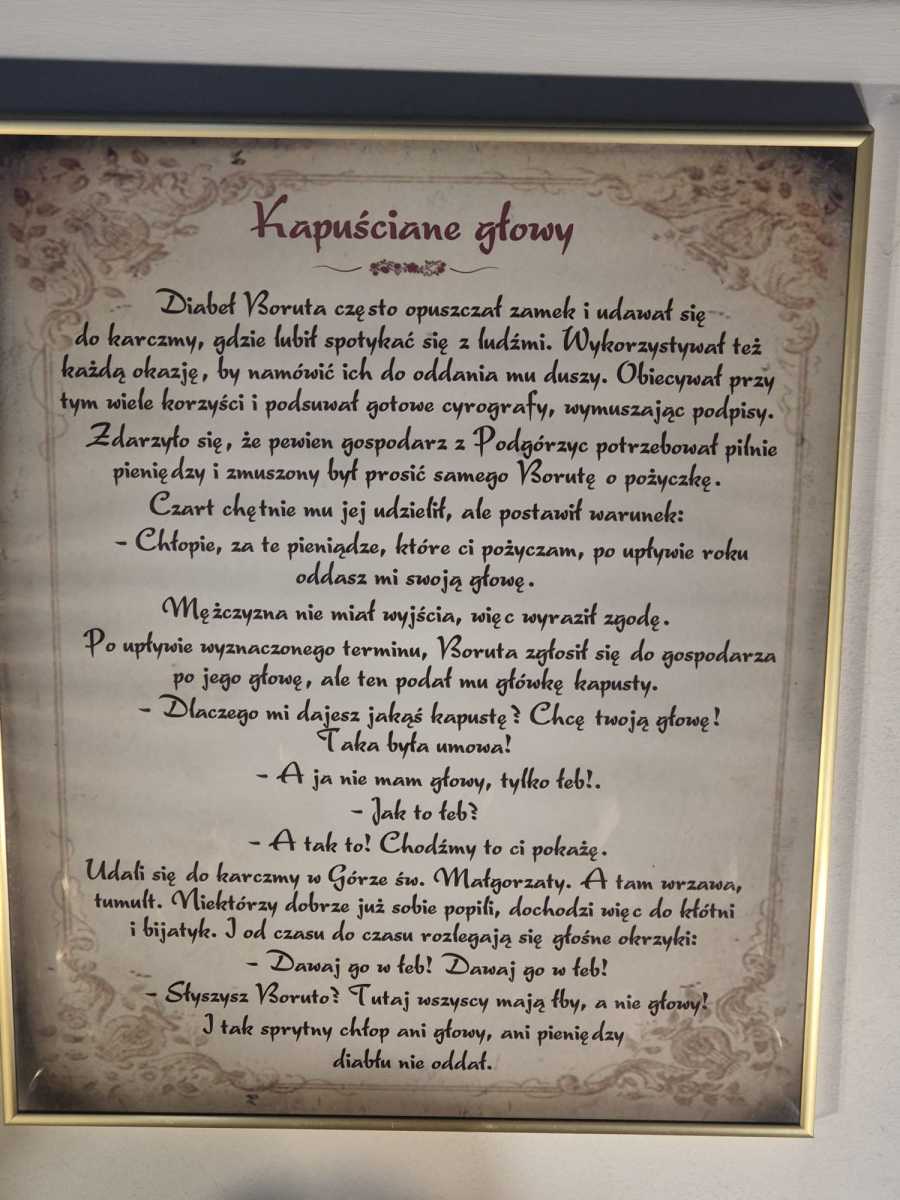 Kapuściane głowy
Diabeł Boruta często opuszczał zamek i udawał się
do karczmy, gdzie lubił spotykać się z ludźmi. Wykorzystywał też
każdą okazję, by namówić ich do oddania mu duszy. Obiecywał przy
tym wiele korzyści i podsuwał gotowe cyrografy, wymuszając podpisy.
Zdarzyło się, że pewien gospodarz z Podgórzyc potrzebował pilnie
pieniędzy i zmuszony był prosić samego Borutę o pożyczkę.
Czart chętnie mu jej udzielił, ale postawił warunek:
- Chłopie, za te pieniądze, które ci pożyczam, po upływie roku
oddasz mi swoją głowę.
Mężczyzna nie miał wyjścia, więc wyraził zgodę.
Po upływie wyznaczonego terminu, Boruta zgłosił się do gospodarza
po jego głowę, ale ten podał mu główkę kapusty.
- Dlaczego mi dajesz jakąś kapustę? Chcę twoją głowę!
Taka była umowa!
- A ja nie mam głowy, tylko łeb!.
- Jak to łeb?
- A tak to! Chodźmy to ci pokażę.
Udali się do karczmy w Górze św. Małgorzaty. A tam wrzawa,
tumult. Niektórzy dobrze już sobie popili, dochodzi więc do kłótni
i bijatyk. I od czasu do czasu rozlegają się głośne okrzyki:
- Dawaj go w łeb! Dawaj go w łeb!
- Słyszysz Boruto? Tutaj wszyscy mają łby, a nie głowy!
I tak sprytny chłop ani głowy, ani pieniędzy
diabłu nie oddał.